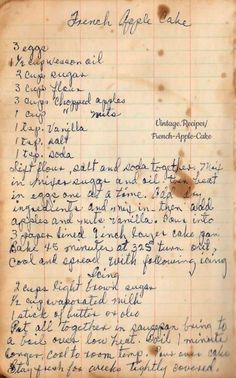 French Apple Cake
3 eggs
1½ cup wesson oil
2 cup sugar
3 cup flour
3 cups chopped apples
1 cup " nuts
1 tsp. Vanilla
1 tsp. salt
1 tsp. soda
Vintage.Recipes/
French-Apple-Cake
Sift flour, salt and soda together, Mix
in mixer sugar and oil, then beat
in eggs one at a time. Add
ingredients and mix in then add
apples and nuts vanilla. Pour into
3 paper lined 9 inch layer cake pan
Bake 45 minutes at 325 turn oil,
Cool and spread with following icing
Icing
2 cups light brown sugar
½ cup evaporated milk
1 stick of butter or oleo
Put all together in saucepan bring to
a boil over low heat. Boil 1 minute
longer, cool to room temp. Pour over cake
Stay fresh for weeks tightly covered.